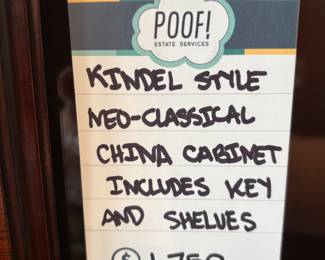 POOF!
ESTATE SERVICES
KINDEL STYLE
NEO-CLASSICAL
CHINA CABINET
INCLUDES KEY
AND SHELVES
$ 1,750